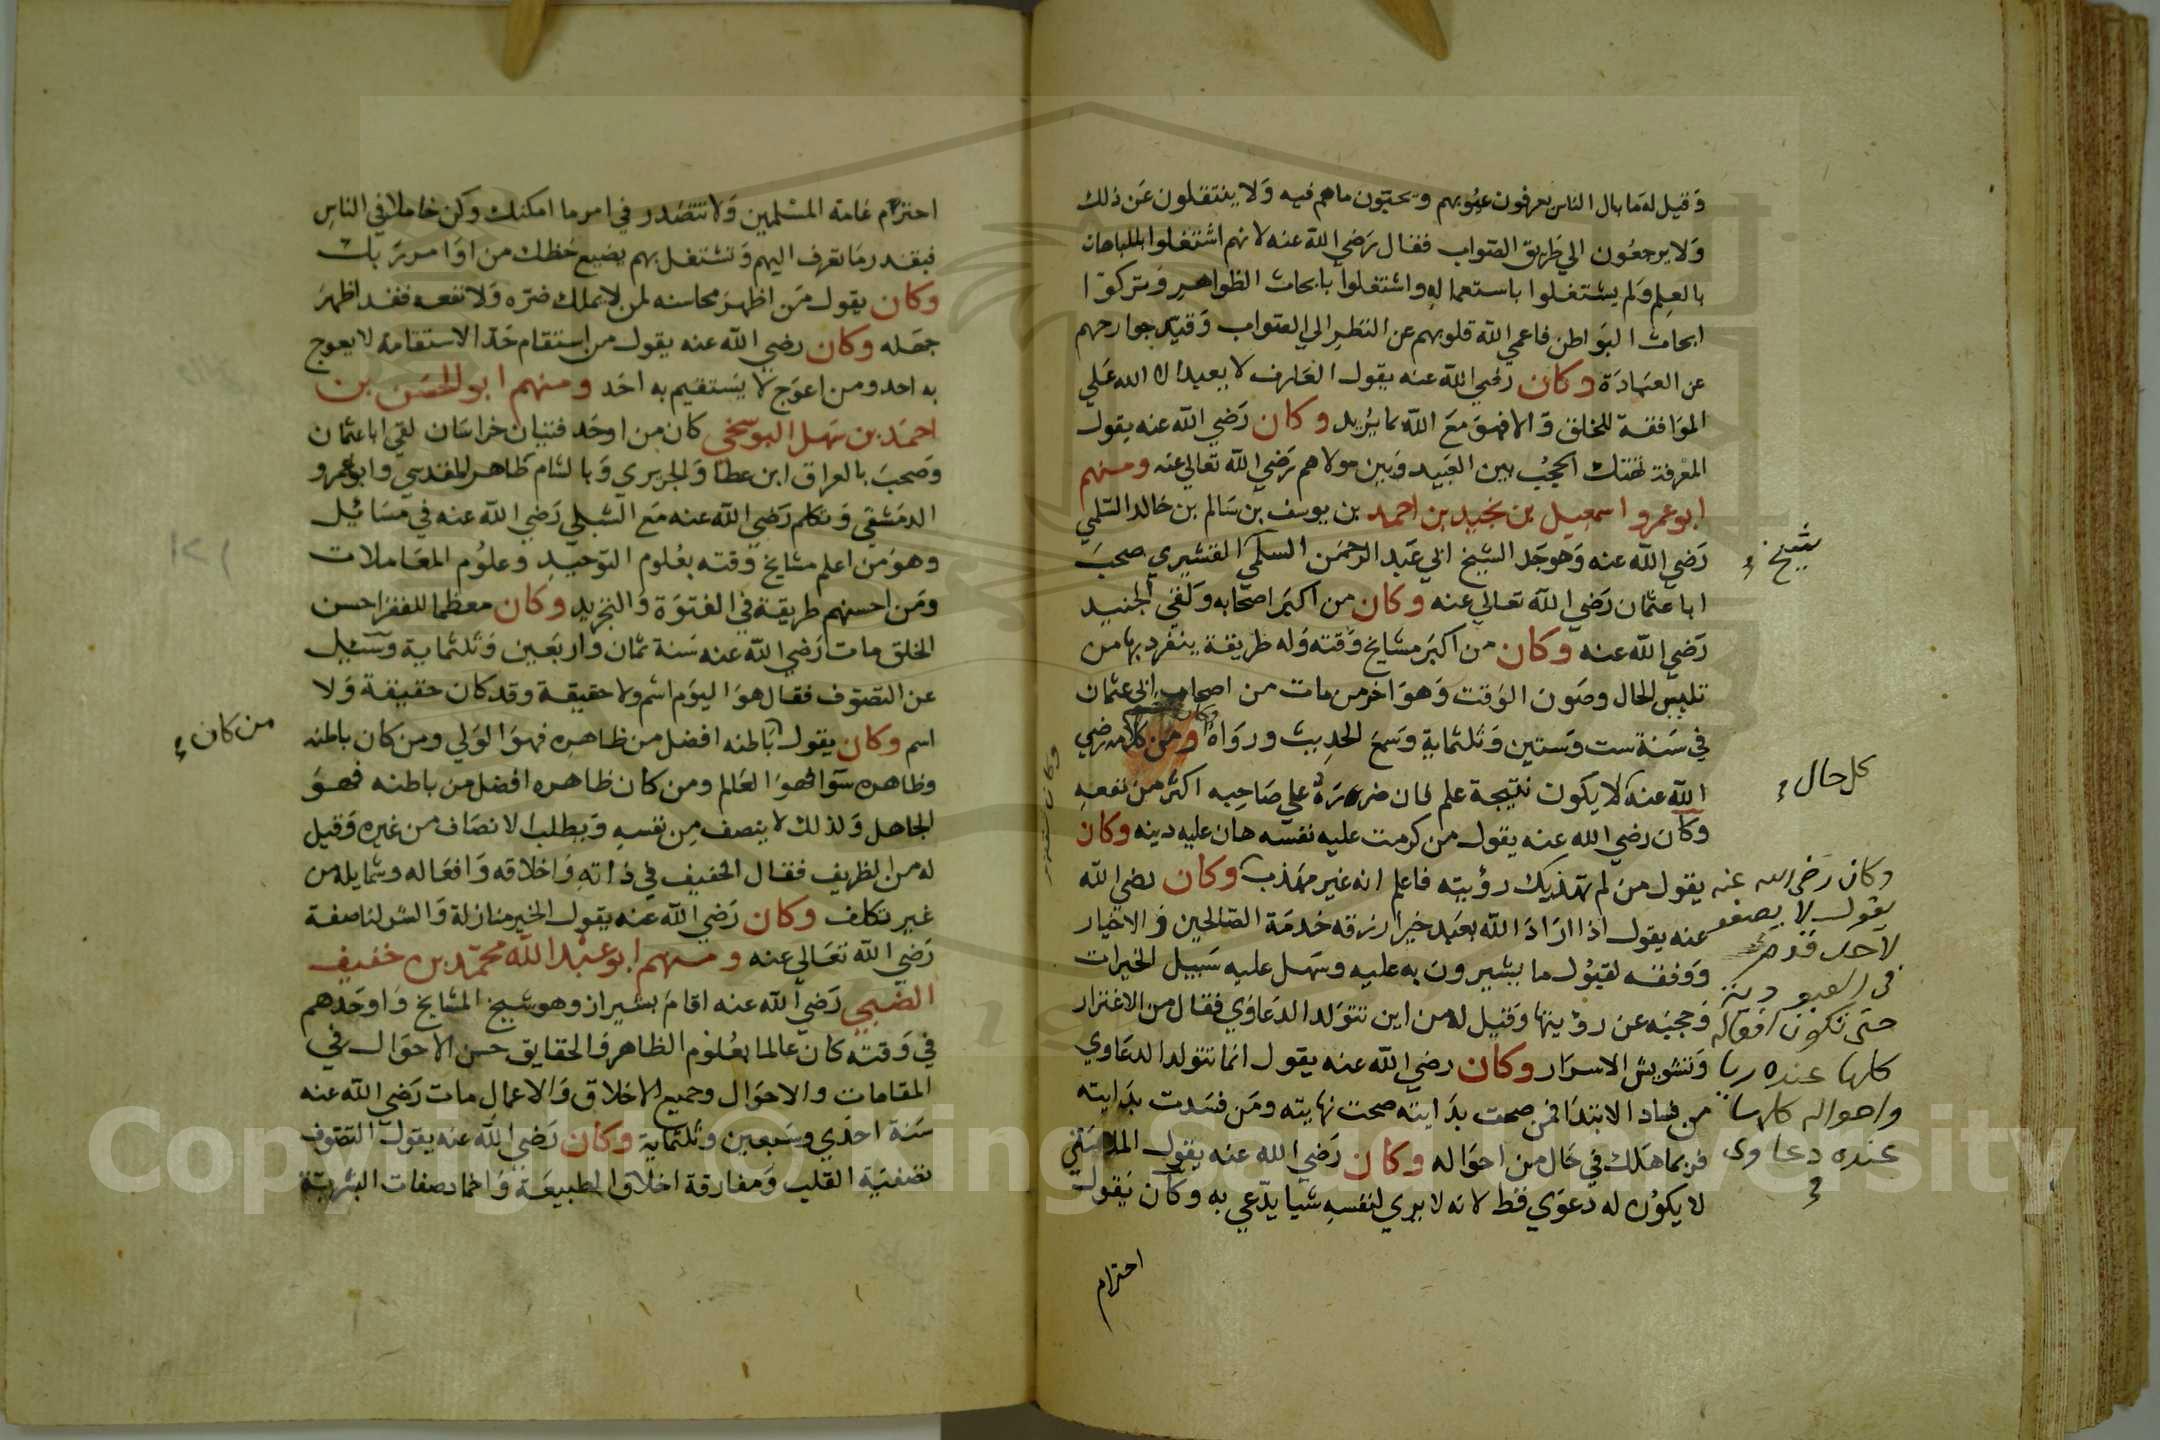 وَقيل له مَا بال الناس يعرفون عيُوبهم ويحبّون ما هم فيه وَلا ينتقلون عَن ذلك
وَلا يرجعُون الي طريق الصّواب فقال رَضي الله عنه لانهم اشتغلوا بالمباهات
بالعِلم وَلم يشتغلوا باستعماله واشتغلوا بابحاث الظواهِر وَتركوا
ابحاث البَواطن فاعمي الله قلوبهم عن النظر الي الصواب وَقيّد جوارحهم
عن العبَادَة وكان رضي الله عنه يقول العَارف لا يعبد الله عَلي
الموَافقة للخلق وَلا فهوَ معَ الله بما يُريد وكان رَضي الله عنه يقول
المعرفة تهتك الحجُب بين العَبيد وَبين مولاهم رَضي الله تعالي عنه ومنهم
ابو عمرو اسمعيل بن نجيد بن احمد بن يوسف بن سَالم بن خالد السّلمي
رَضي الله عنه وَهو جَد الشيخ ابي عَبد الرحمَن السلمي القشيري صحبَ
شيخ
ابا عثمان رَضي الله تعالي عنه وكان من اكبَر اصحَابه وَلقي الجنيد
رَضي الله عنه وكان من اكبَر مشايخ وَقته وَله طريقة ينفرد بها من
تلبيس الحال وصَون الوَقت وَهوَ اخر من مات من اصحاب ابي عثمان
في سَنة ست وَستين وَثلثماية وَسمعَ الحديث ورَوَاه وكان ومن كلامه رضي
الله عنه لا يكون نتيجة علم فان ضرره علي صَاحِبه اكثَر من نفعهِ
كل حال
وكان رضي الله عنه يقول من كرمت عليه نفسه هان عليه دينه وكان
يقول من لم تهذبك رؤيته فاعلم انه غير مهذب وكان رضي الله
عنه يقول اذا ارَادَ الله بعَبد خيرا رزقه خدمَة الصّالحين وَالاخيار
وَوفقه لقبُول ما يشيرون به عليه وسَهل عليه سَبيل الخيرات
وَحجبَه عن رؤيتها وَقيل له من اين تتوَلد الدعَاوي فقال من الاغترار
وَتشويش الاسرَار وكان رضي الله عنه يقول انما تتولد الدعَاوي
من فسَاد الابتدَا فمن صحت بدَايته صحت نهايته ومَن فسَدت بدَايته
فربما هَلك في حَال من احوَاله وكان رَضي الله عنه يقول الملامَتي
لا يكوُن له دعوَي قط لانه لا يري لنفسهِ شيا يدّعي به وكان يَقول
وكان رَضي الله عنه
يقول لا يصفو
لاحد قدم
في العبودية
حتي تكون افعاله
كلها عنده ريا
واحواله كلها
عنده دعاوي
احترام
احترام عَامة المسْلمين وَلا تتصَدر في امر ما امكنك وكن خاملا في الناس
فبقدر مَا تعرف اليهم وَتشتغل بهم يضيع حَظك من اوَامر ربك
وكان يقول مَن اظهرَ محاسنه لمن لا يملك ضرّه وَلا نفعه فقد اظهرَ
جهَله وكان رضي الله عنه يقول من استقام حَدّ الاستقامة لا يعوج
به احد ومن اعوَج لا يَستقيم به احَد ومنهم ابو الحسَن بن
احمَد بن سَهل البوسنجي كان من اوحَد فتيان خراسَان لقي ابا عثمان
وَصحبَ بالعراق ابن عطا وَالجريري وَبالشام طَاهر المقدسي وابو عمرو
الدمَشقي وَتكلم رَضي الله عنه مَع الشبلي رَضي الله عنه في مسَائيل
وهوَ من اعلم مشايخ وَقته بعُلوم التوحيد وعلوُم المعَاملات
ومَن احسنهم طريقة في الفتوَة وَالتجريد وكان معظما للفقراحسن
الخلق مات رَضي الله عنه سَنة ثمان واربَعين وَثلثماية وَسئل
عن التصَوف فقال هوَ اليوَم اسْم ولا حقيقة وقد كان حقيقة وَلا
اسم وكان يقول بَاطنه افضل من ظاهره فهوَ الوَلي ومن كان باطنه
من كان
وظاهره سوَا فهوَ العَالم ومن كان ظاهره افضل من باطنه فهوَ
الجاهل وَلذلك لا ينصف مِن نفسهِ وَيطلب الانصَاف من غيره وَقيل
له من الظريف فقال الخفيف في ذاته وَاخلاقه وَافعَاله وشمايله من
غير تكلف وكان رَضي الله عنه يقول الخير منازلة وَالشر لنا صفة
رَضي الله تعَالي عنه ومنهم ابو عبْد الله محمّد بن خفيف
الضبي رَضي الله عنه اقامَ بشيراز وهو شيخ المشايخ وَاوحَدهم
في وَقته كان عَالما بعُلوم الظاهر وَالحقايق حسن الاحوَال في
المقامات والاحوَال وجميع الاخلاق وَالاعمال مات رَضي الله عنه
سَنة احدَي وسَبعين وثلثماية وكان رَضي الله عنه يقول التصَوف
تصَفيَة القلب وَمفارقة اخلاق الطبيعَة وَاخماد صفات البشَريّة
Copyright © King Saud University